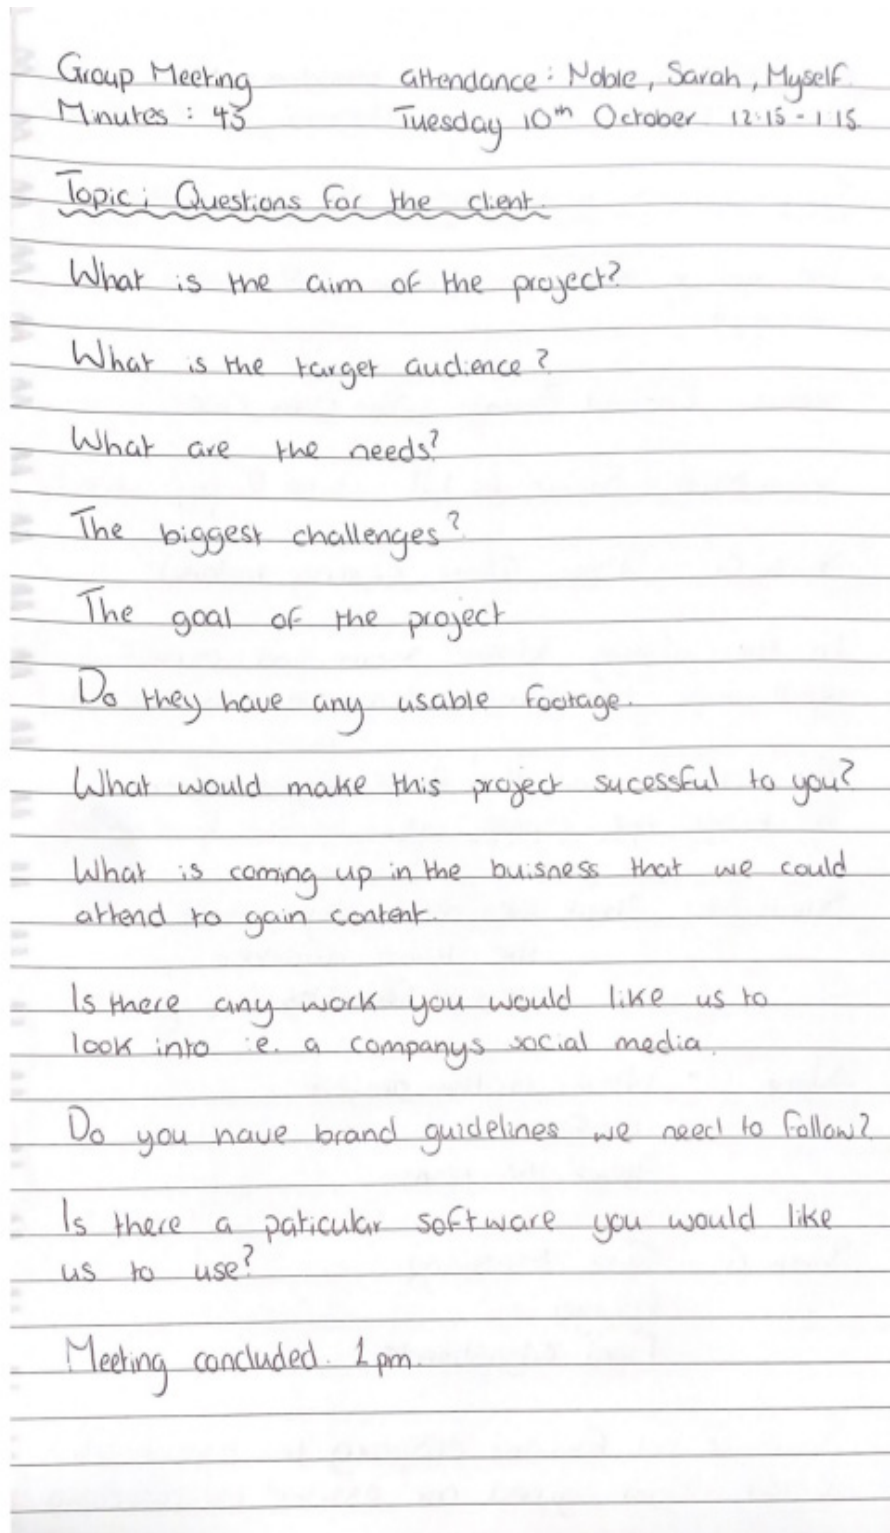 Group Meeting attendance: Noble, Sarah, Myself.
Minutes: 45 Tuesday 10th October 12:15 - 1:15.
Topic; Questions for the client.
What is the aim of the project?
What is the target audience?
What are the needs?
The biggest challenges?
The goal of the project
Do they have any usable footage.
What would make this project sucessful to you?
What is coming up in the buisness that we could
attend to gain content.
Is there any work you would like us to
look into i.e. a companys social media.
Do you have brand guidelines we need to follow?
Is there a paticular software you would like
us to use?
Meeting concluded. 1pm.